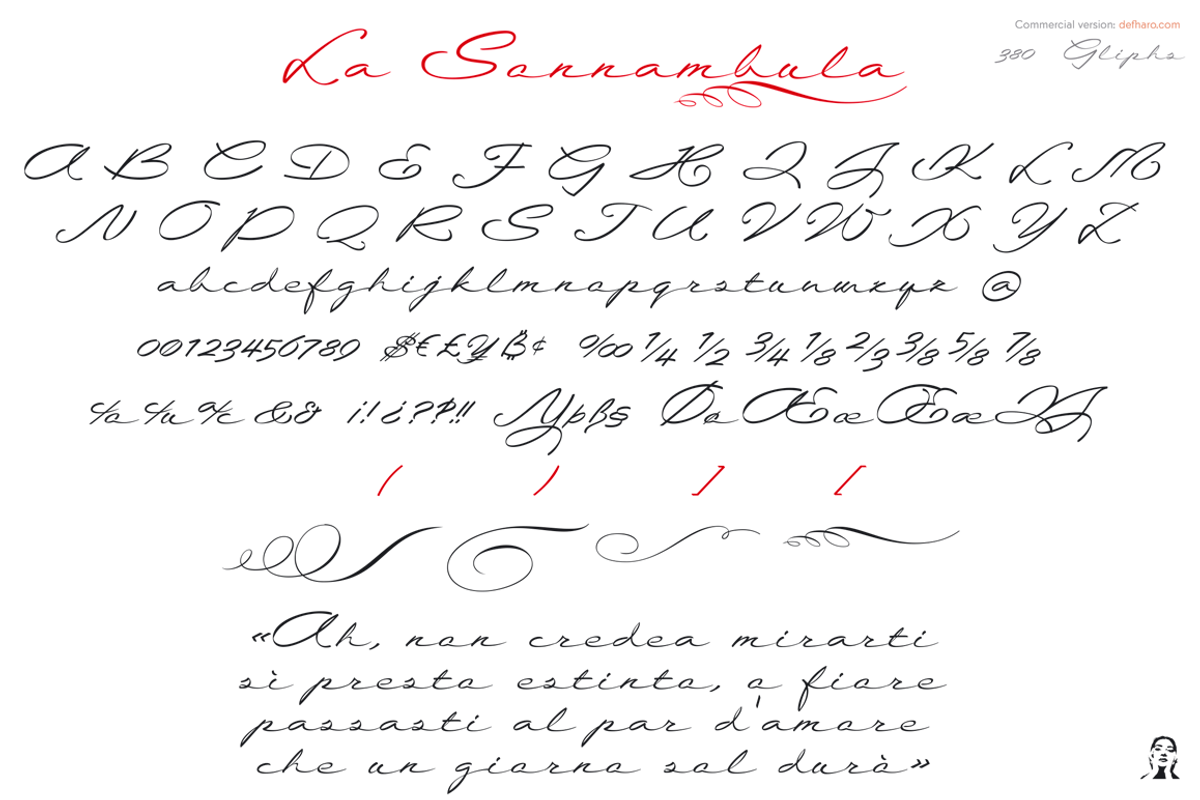 Commercial version: defharo.com
La Sonnambula
380 Gliphs
A B C D E F G H I J K L M
N O P Q R S T U V W X Y Z
abcdefghijklmnopqrstuvwxyz @
00123456789 $€£¥₿¢ %‰ ¼ ½ ¾ ⅛ ⅔ ⅜ ⅝ ⅞
℅ ℆ ℀ && ¡!¿??!! Yþß§ Øø Ææ Œœ IJ
( ) ] [
«Ah, non credea mirarti
sì presto estinto, o fiore
passasti al par d'amore
che un giorno sol durò»